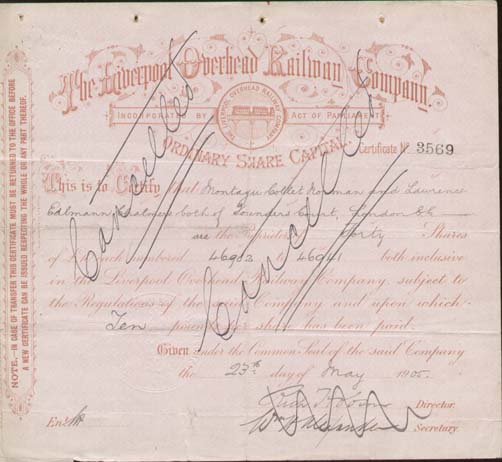 The Liverpool Overhead Railway Company.
INCORPORATED BY ACT OF PARLIAMENT
THE LIVERPOOL OVERHEAD RAILWAY COMPANY
ORDINARY SHARE CAPITAL
Certificate No. 3569
This is to Certify that Montagu Collet Norman and Laurence
Edlmann Chalmers both of Founders Court, London E.C.
are the Proprietors of Forty Shares
of £10 each numbered 46902 46941 both inclusive
in the Liverpool Overhead Railway Company, subject to
the Regulations of the said Company and upon which
Ten pounds per share has been paid.
Given under the Common Seal of the said Company
the 23rd day of May 1905.
Director.
Secretary.
Entd.
Cancelled
Cancelled
NOTE.—IN CASE OF TRANSFER THIS CERTIFICATE MUST BE RETURNED TO THE OFFICE BEFORE
A NEW CERTIFICATE CAN BE ISSUED RESPECTING THE WHOLE OR ANY PART THEREOF.